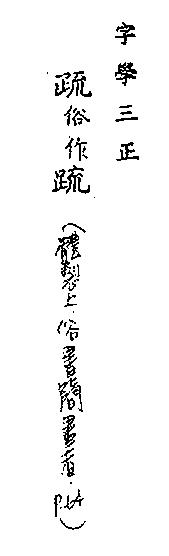 字學三正
疏俗作䟽
(體製上·俗書簡畫者·P.64)